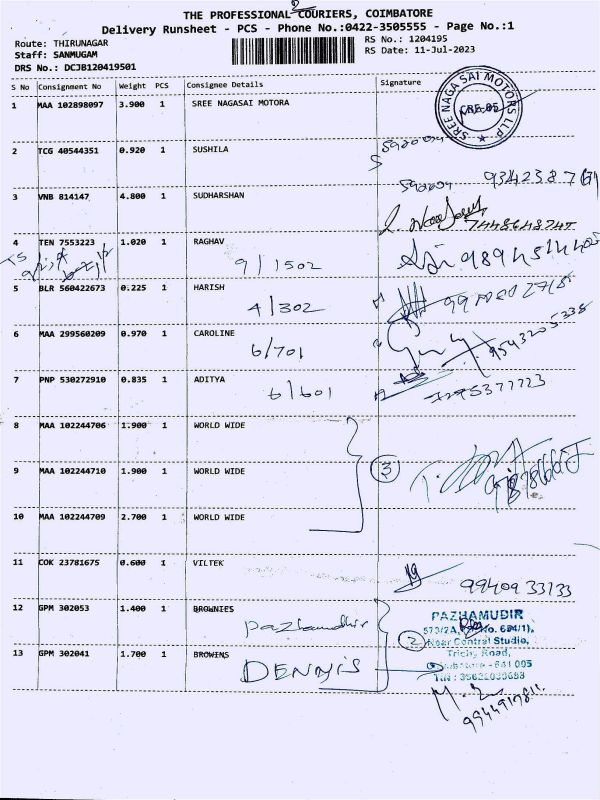 THE PROFESSIONAL COURIERS, COIMBATORE
Delivery Runsheet - PCS - Phone No.:0422-3505555 - Page No.:1
Route: THIRUNAGAR
RS No.: 1204195
Staff: SANMUGAM
RS Date: 11-Jul-2023
DRS No.: DCJB120419501
S No Consignment No Weight PCS Consignee Details Signature
1 MAA 102898097 3.900 1 SREE NAGASAI MOTORA
SREE NAGA SAI MOTORS LLP
CBE-05
2 TCG 40544351 0.920 1 SUSHILA
3 VNB 814147 4.800 1 SUDHARSHAN
4 TEN 7553223 1.020 1 RAGHAV
9/1502
5 BLR 560422673 0.225 1 HARISH
4/302
6 MAA 299560209 0.970 1 CAROLINE
6/701
9543205335
7 PNP 530272910 0.835 1 ADITYA
6/601
8 MAA 102244706 1.900 1 WORLD WIDE
9 MAA 102244710 1.900 1 WORLD WIDE
3
10 MAA 102244709 2.700 1 WORLD WIDE
11 COK 23781675 0.600 1 VILTEK
9940933133
12 GPM 302053 1.400 1 BROWNIES
Pazhamudhir
2
PAZHAMUDIR
Near Central Studio,
Trichy Road,
Coimbatore - 641 005
13 GPM 302041 1.700 1 BROWINS
DENNIS